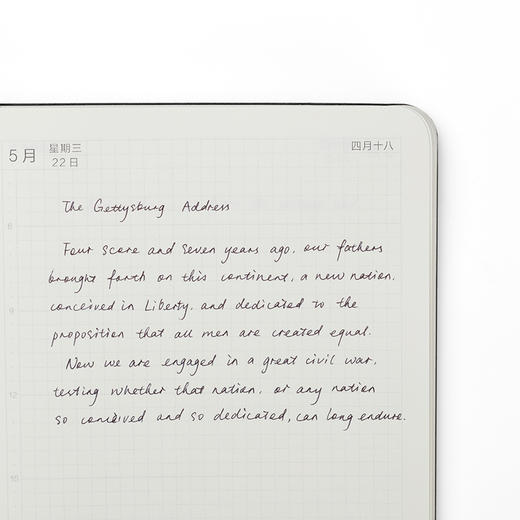 5月 星期三 22日 四月十八
The Gettysburg Address
6
Four score and seven years ago, our fathers
brought forth on this continent, a new nation,
9
conceived in Liberty, and dedicated to the
proposition that all men are created equal.
Now we are engaged in a great civil war,
12
testing whether that nation, or any nation
so conceived and so dedicated, can long endure.
15